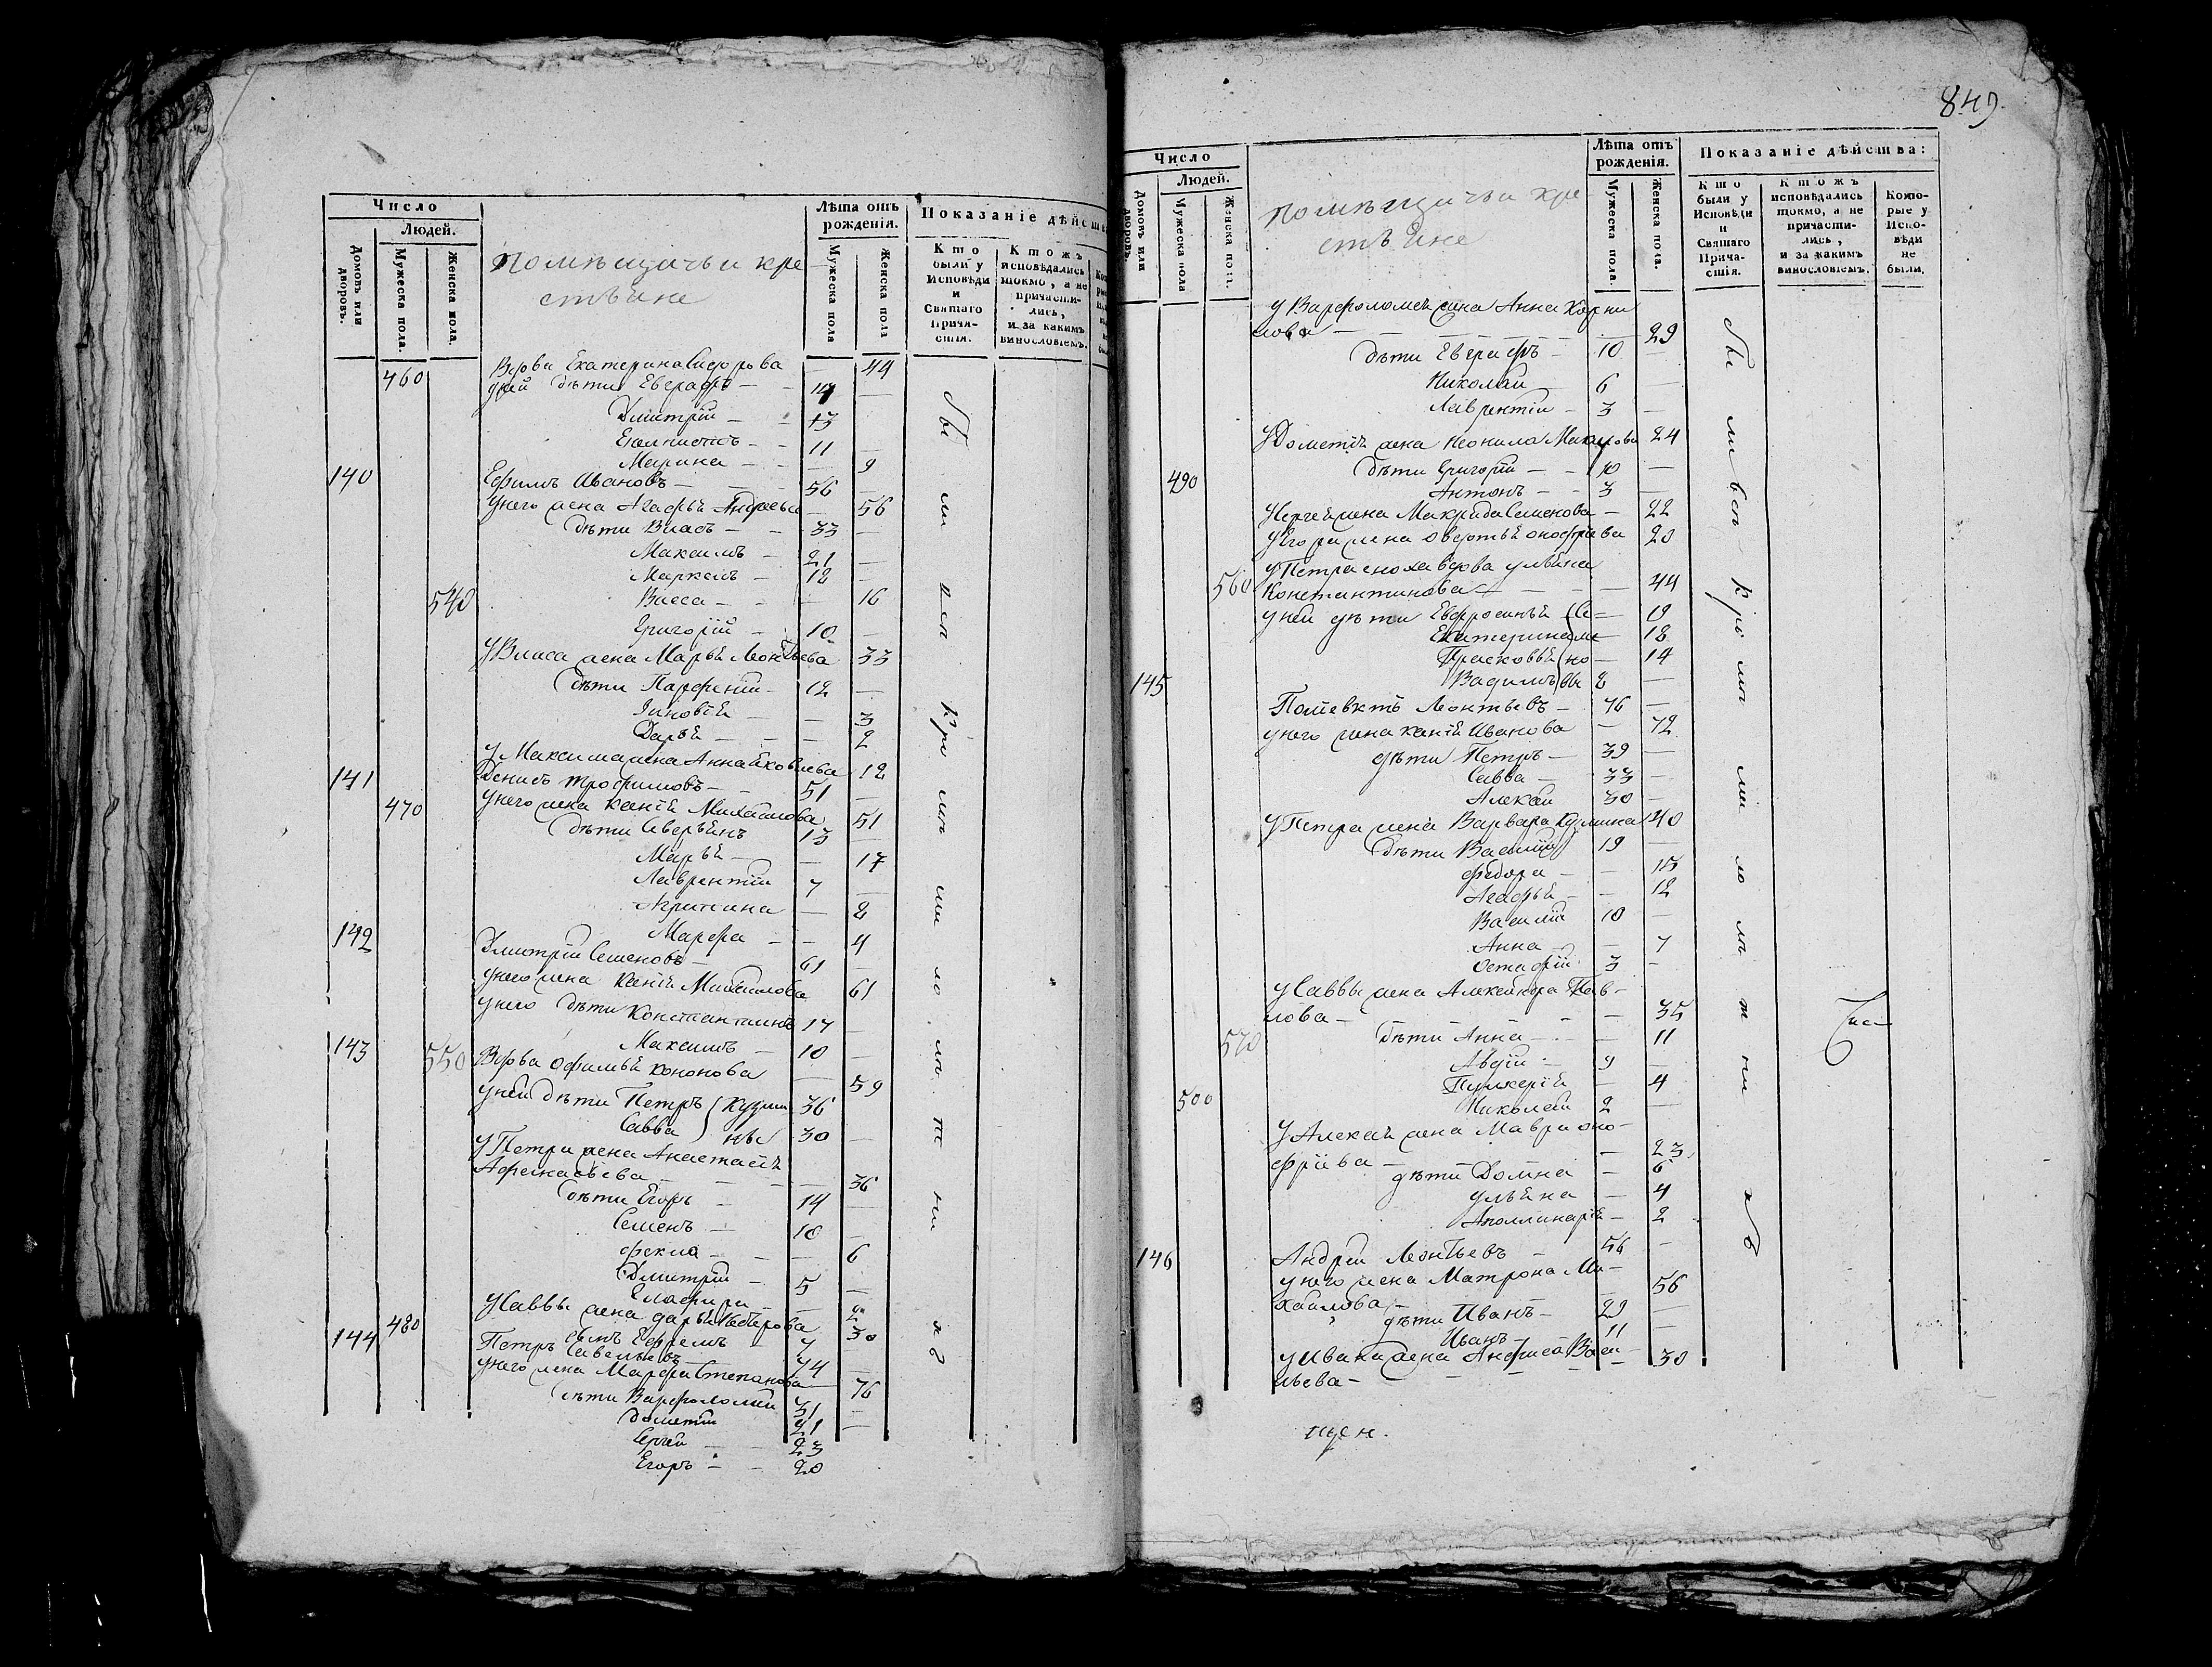 Число
Людей.
Домовъ или дворовъ.
Мужеска пола.
Женска пола.
Помѣщичьи кре
стьяне
Лѣта отъ рожденія.
Мужеска пола
Женска пола
Показаніе дѣйств
Кто были у Исповѣди и Святаго Прича-стія.
Кто жъ исповѣдались токмо, а не причасти-лись, и за какимъ винословіемъ.
Вдова Екатерина Сидорова — 44
460 у ней дѣти Евграфъ — 14 —
Дмитрій — 13
11 —
Марина — — 9
140 Ефимъ Ивановъ — 56 —
У него жена Агафья Андреева — 56
дѣти Власъ — 33 —
Максимъ — 21 —
Маркелъ — 12 —
540 Васса — — 16
Григорій — 10 —
У Власа жена Марья Леонтьева 33
дѣти Парфеній — 12 —
Зиновья — — 3
Дарья — — 2
У Максима жена Анна Яковлева 12
141 Денисъ Трофимовъ — 51 —
470 У него жена Ксенія Михаилова 51
дѣти Аверьянъ 13 —
Марья — — 17
Лаврентій 7 —
— 2
Марфа — — 4
142 Дмитрій Семеновъ — 61 —
У него жена Ксенія Михаилова 61
У него дѣти Константинъ 17 —
Максимъ — 10 —
143 550 Вдова Офимья Кононова — 59
У ней дѣти Петръ Кузми 36
Савва ны 30 —
У Петра жена Анастасія
Афанасьева — — 36
дѣти Егоръ — 14 —
Семенъ — 10 —
Фекла — — 6
Дмитрій — 5 —
Глафира — — 2
У Саввы жена Дарья 30
480 сынъ Ефремъ — 7
144 Петръ Савельевъ 74 —
У него жена Марфа Степанова — 76
дѣти Варфоломей 31 —
Дометій 21 —
Сергей — 23
Егоръ — 20
бы
ли
всѣ
849.
Число
Людей.
Домовъ или дворовъ.
Мужеска пола
Женска пол.
Помѣщичьи кре
стьяне
Лѣта отъ рожденія.
Мужеска пола.
Женска пола.
Показаніе дѣйства:
Кто были у Исповѣди и Святаго Прича-стія.
Кто жъ исповѣдались токмо, а не причасти-лись, и за какимъ винословіемъ.
Кото-рые у Испо-вѣди не были.
У Варфоломея жена Анна Корни
лова — — 29
дѣти Евграфъ — 10 —
Николай 6 —
Лаврентій — 3 —
У Дометія жена Неонила Макарова 24
дѣти Григорій — 10 —
490 Антонъ — 3 —
У Сергея жена Макрида Семенова — 22
У Егора жена 20
У Петра сноха вдова Ульяна
560 Константинова — — 44
у ней дѣти Евфросинья 19
Екатерина 18
Прасковья 14
Вадимъ 2 —
145 Полѣевктъ Леонтьевъ — 76 —
у него жена Ксенія Иванова — 72
дѣти Петръ — 39 —
Савва — 33 —
Алексѣй 30 —
У Петра жена Варвара Кузмина 40
дѣти Василій 19 —
Федора — — 15
Агафья — — 12
Василій 10 —
Анна — — 7
Остафій 3 —
У Саввы жена Александра Пав-
лова — — 35
570 дѣти Анна — — 11
Авдій — 9 —
Пулхерія — 4
500 Николай 2 —
У Алексѣя жена Мавра Оно-
фріева — — 23
дѣти Домна — 6
Ульяна — 4
Аполлинарія — 2
146 Андрей Леонтьевъ — 56 —
у него жена Матрона Ми-
хаилова — 56
дѣти Иванъ — 29 —
Иванъ — 11 —
У Ивана жена Анфиса Васи-
льева — — 30
бы
ли
всѣ